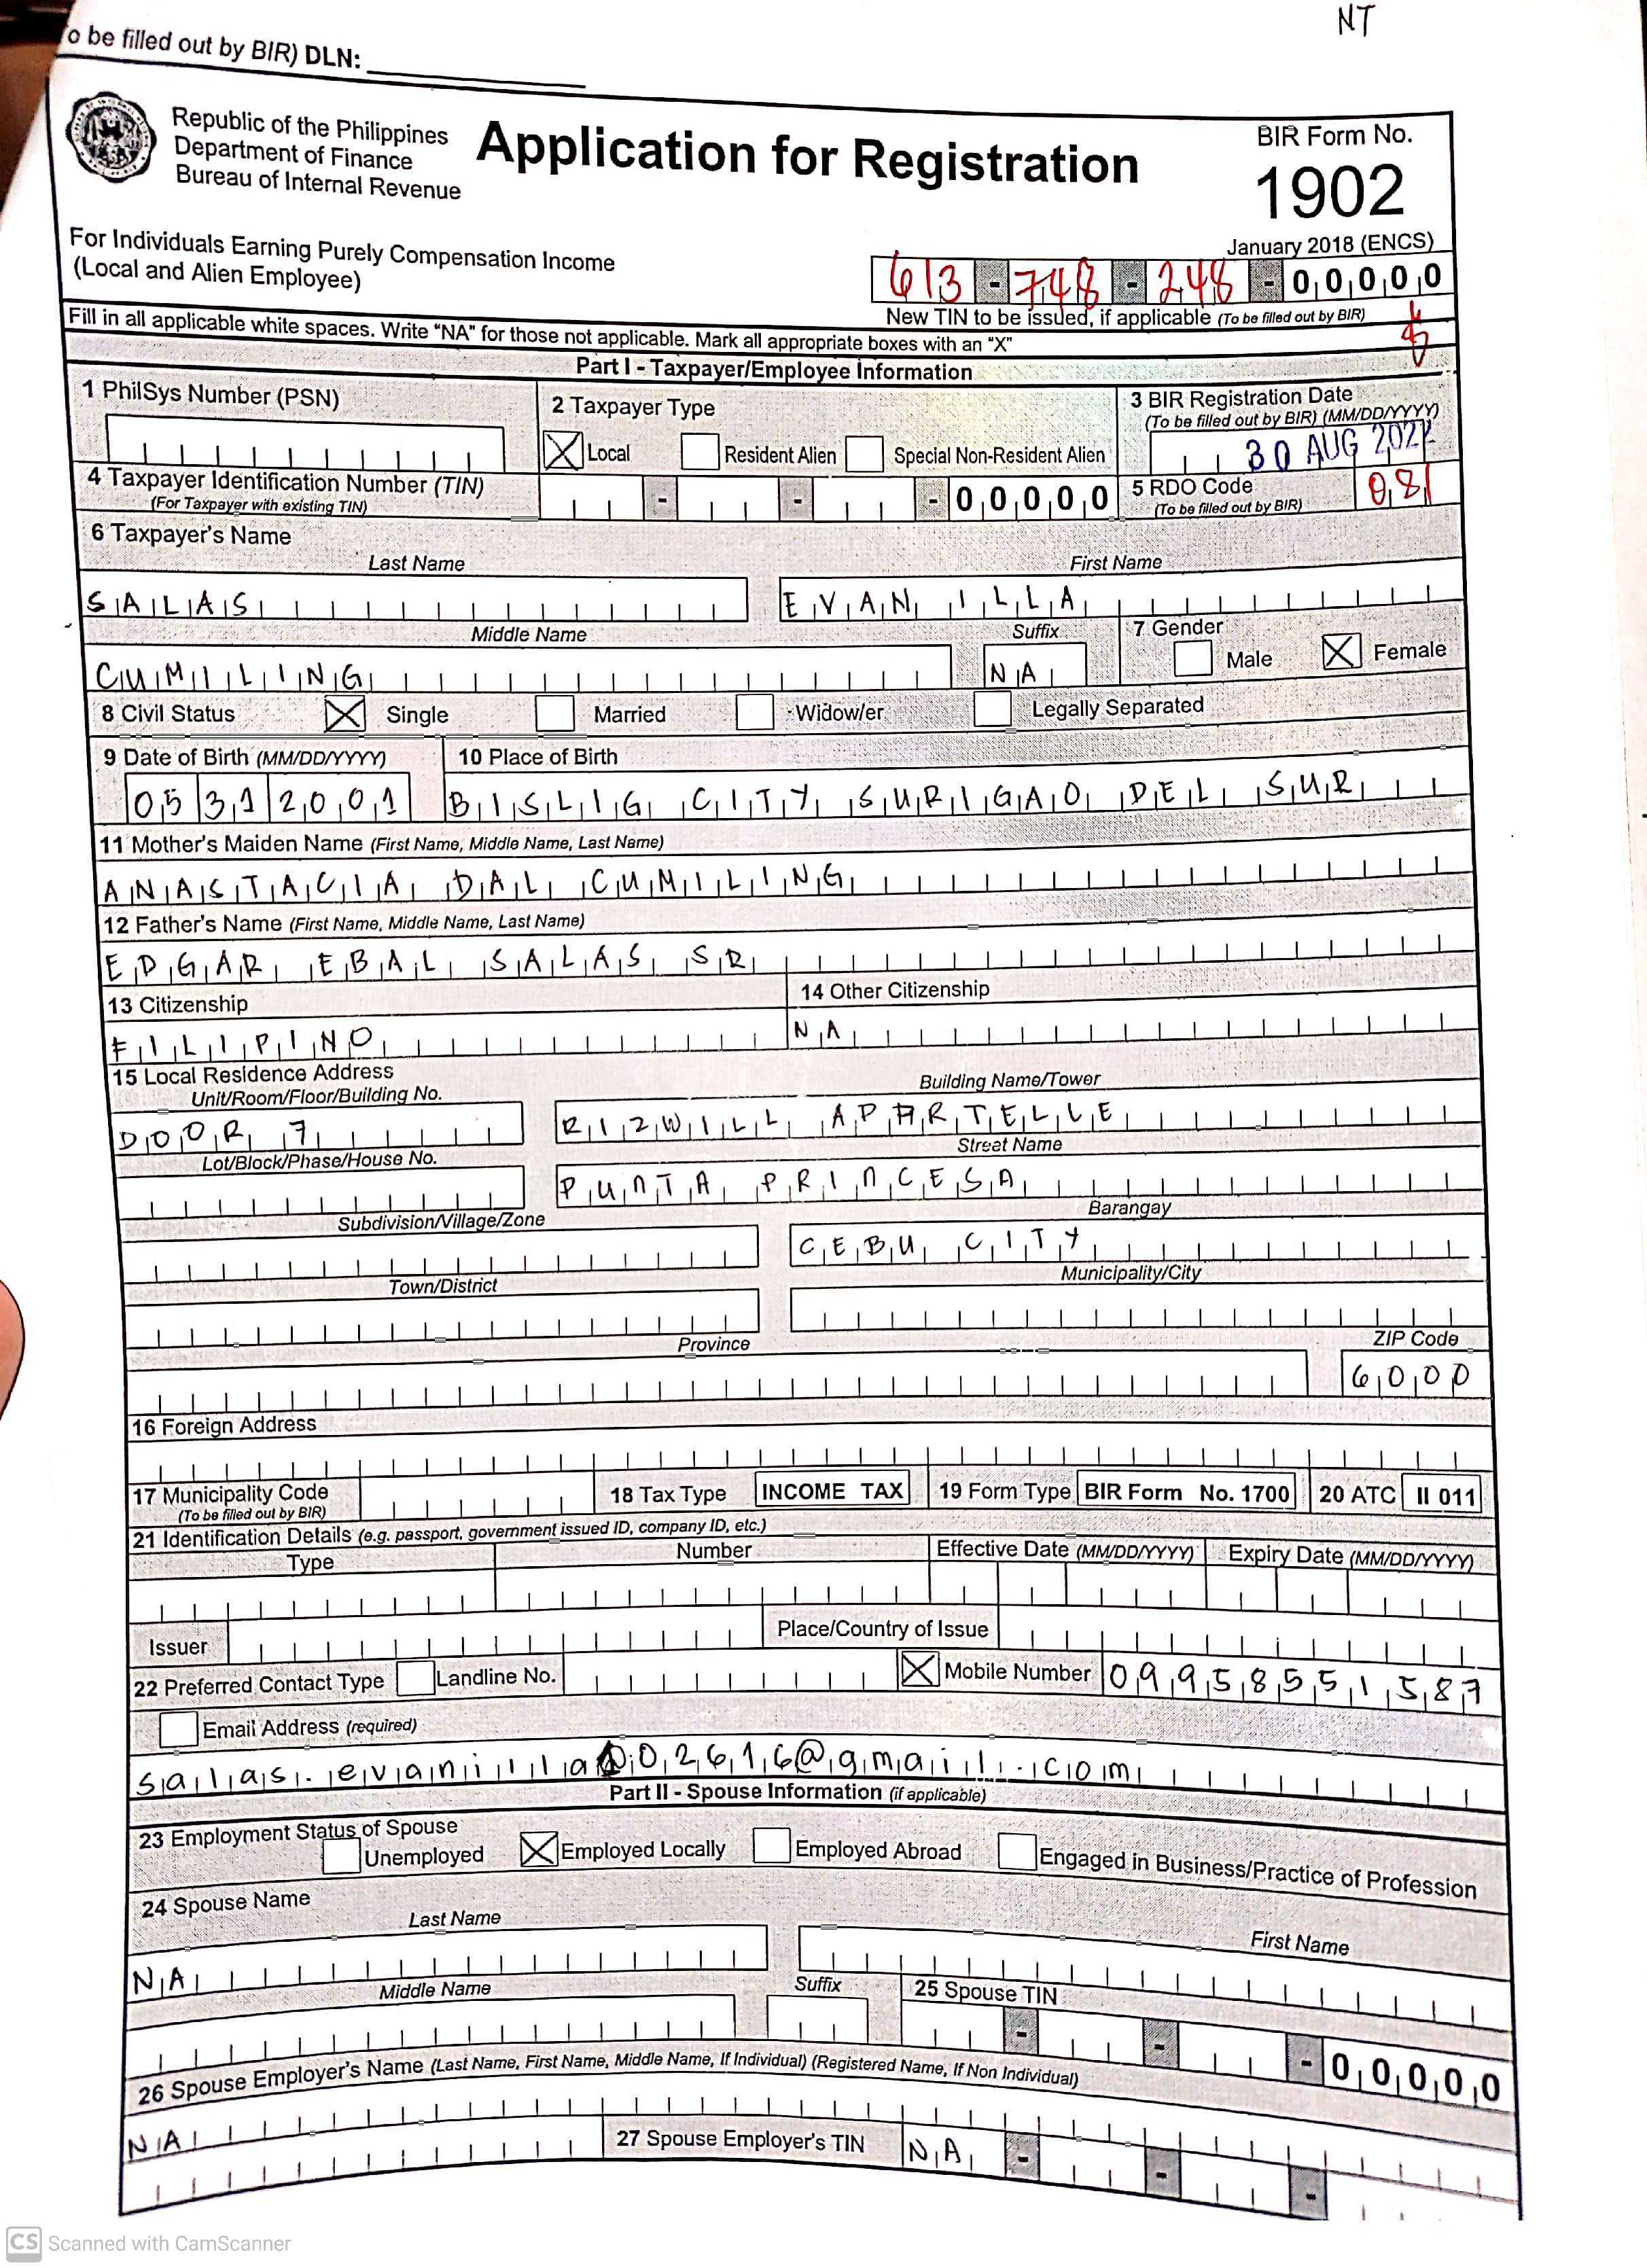 NT
o be filled out by BIR) DLN:
Republic of the Philippines
Department of Finance
Bureau of Internal Revenue
Application for Registration
BIR Form No.
1902
January 2018 (ENCS)
For Individuals Earning Purely Compensation Income
(Local and Alien Employee)
613 - 748 - 248 - 00000
New TIN to be issued, if applicable (To be filled out by BIR)
Fill in all applicable white spaces. Write “NA” for those not applicable. Mark all appropriate boxes with an “X”
Part I - Taxpayer/Employee Information
1 PhilSys Number (PSN)
2 Taxpayer Type
X Local Resident Alien Special Non-Resident Alien
3 BIR Registration Date
(To be filled out by BIR) (MM/DD/YYYY)
30 AUG 2022
4 Taxpayer Identification Number (TIN)
(For Taxpayer with existing TIN)
- - - 00000
5 RDO Code
(To be filled out by BIR)
081
6 Taxpayer's Name
Last Name First Name
SALAS EVAN ILLA
Middle Name Suffix
7 Gender
CUMILING NA
Male X Female
8 Civil Status X Single Married Widow/er Legally Separated
9 Date of Birth (MM/DD/YYYY) 10 Place of Birth
05312001 BISLIG CITY SURIGAO DEL SUR
11 Mother's Maiden Name (First Name, Middle Name, Last Name)
ANASTACIA DAL CUMILING
12 Father's Name (First Name, Middle Name, Last Name)
EDGAR EBAL SALAS SR
13 Citizenship 14 Other Citizenship
FILIPINO NA
15 Local Residence Address
Unit/Room/Floor/Building No. Building Name/Tower
DOOR 7 RIZWILL APARTELLE
Lot/Block/Phase/House No. Street Name
PUNTA PRINCESA
Subdivision/Village/Zone Barangay
CEBU CITY
Town/District Municipality/City
Province ZIP Code
6000
16 Foreign Address
17 Municipality Code
(To be filled out by BIR)
18 Tax Type INCOME TAX 19 Form Type BIR Form No. 1700 20 ATC II 011
21 Identification Details (e.g. passport, government issued ID, company ID, etc.)
Type Number Effective Date (MM/DD/YYYY) Expiry Date (MM/DD/YYYY)
Issuer Place/Country of Issue
22 Preferred Contact Type Landline No. X Mobile Number 09958551587
Email Address (required)
salas.evanilla02616@gmail.com
Part II - Spouse Information (if applicable)
23 Employment Status of Spouse
Unemployed X Employed Locally Employed Abroad Engaged in Business/Practice of Profession
24 Spouse Name
Last Name First Name
NA
Middle Name Suffix 25 Spouse TIN
- - - 00000
26 Spouse Employer's Name (Last Name, First Name, Middle Name, If Individual) (Registered Name, If Non Individual)
NA
27 Spouse Employer's TIN NA - - -
CS Scanned with CamScanner